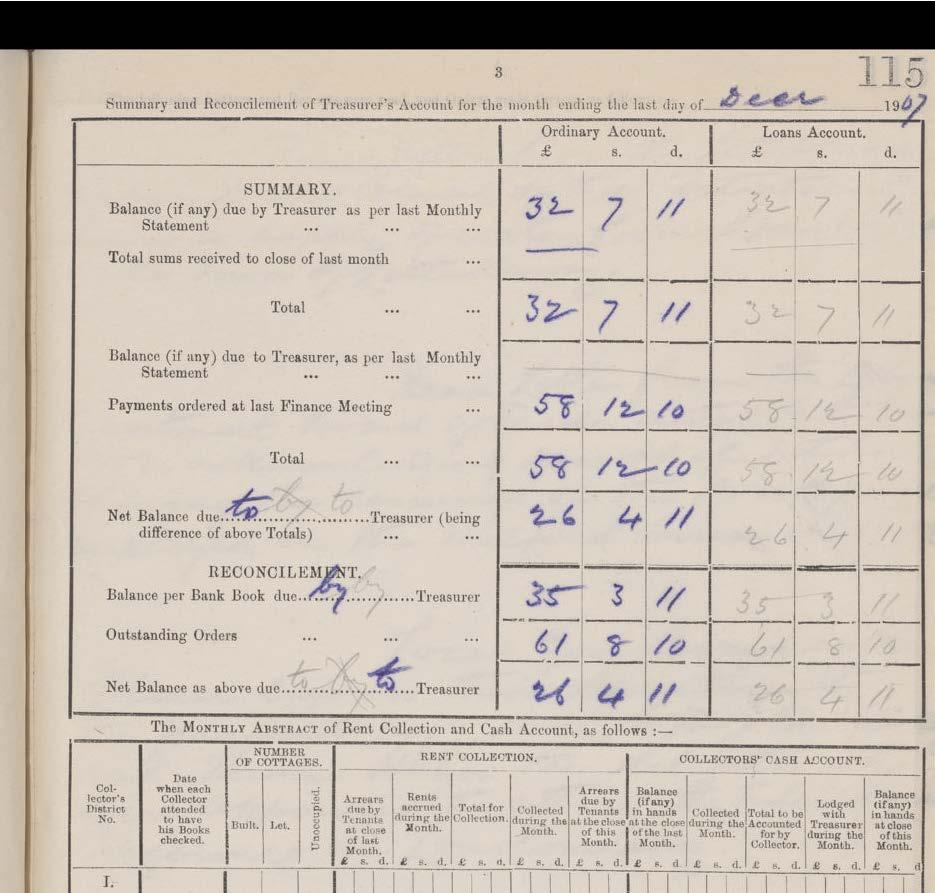 115
3
Summary and Reconcilement of Treasurer's Account for the month ending the last day of Decr 1907
Ordinary Account. Loans Account.
£ s. d. £ s. d.
SUMMARY.
Balance (if any) due by Treasurer as per last Monthly 32 7 11 32 7 11
Statement ... ... ...
Total sums received to close of last month ...
Total ... ... 32 7 11 32 7 11
Balance (if any) due to Treasurer, as per last Monthly
Statement ... ... ...
Payments ordered at last Finance Meeting ... 58 12 10 58 12 10
Total ... ... 58 12 10 58 12 10
Net Balance due to by to Treasurer (being 26 4 11 26 4 11
difference of above Totals) ... ...
RECONCILEMENT.
Balance per Bank Book due by by Treasurer 35 3 11 35 3 11
Outstanding Orders ... ... ... 61 8 10 61 8 10
Net Balance as above due to by to Treasurer 26 4 11 26 4 11
The MONTHLY ABSTRACT of Rent Collection and Cash Account, as follows :—
NUMBER OF COTTAGES. RENT COLLECTION. COLLECTORS' CASH ACCOUNT.
Collector's District No.
Date when each Collector attended to have his Books checked.
Built. Let. Unoccupied.
Arrears due by Tenants at close of last Month.
Rents accrued during the Month.
Total for Collection.
Collected during the Month.
Arrears due by Tenants at the close of this Month.
Balance (if any) in hands at the close of the last Month.
Collected during the Month.
Total to be Accounted for by Collector.
Lodged with Treasurer during the Month.
Balance (if any) in hands at close of this Month.
£ s. d. £ s. d. £ s. d. £ s. d. £ s. d. £ s. d. £ s. d. £ s. d. £ s. d. £ s. d
I.